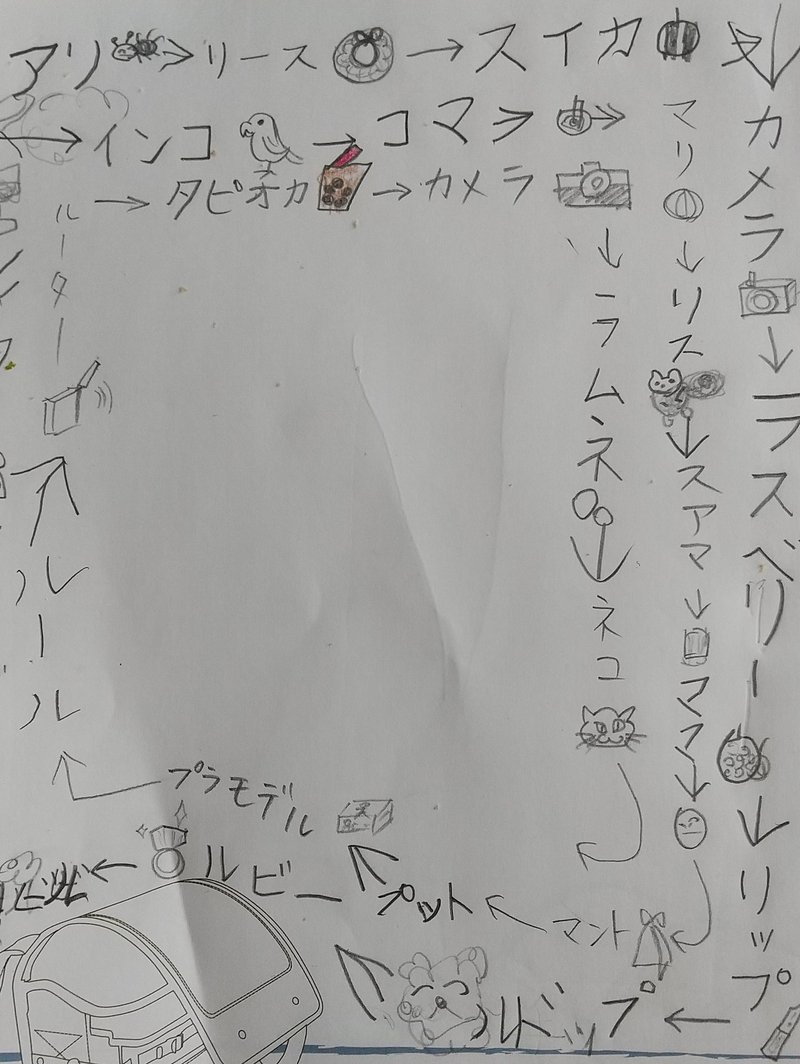 アリ → リース → スイカ →
カメラ
↓
ラスベリー
↓
リップ
←
プッドル
ルビー
←
→ インコ → コマ →
マリ
↓
リス
↓
スアマ
↓
ママ
↓
マント
←
トップ
プラモデル
ルール
ルーター
→ タピオカ → カメラ
↓
ラムネ
↓
ネコ